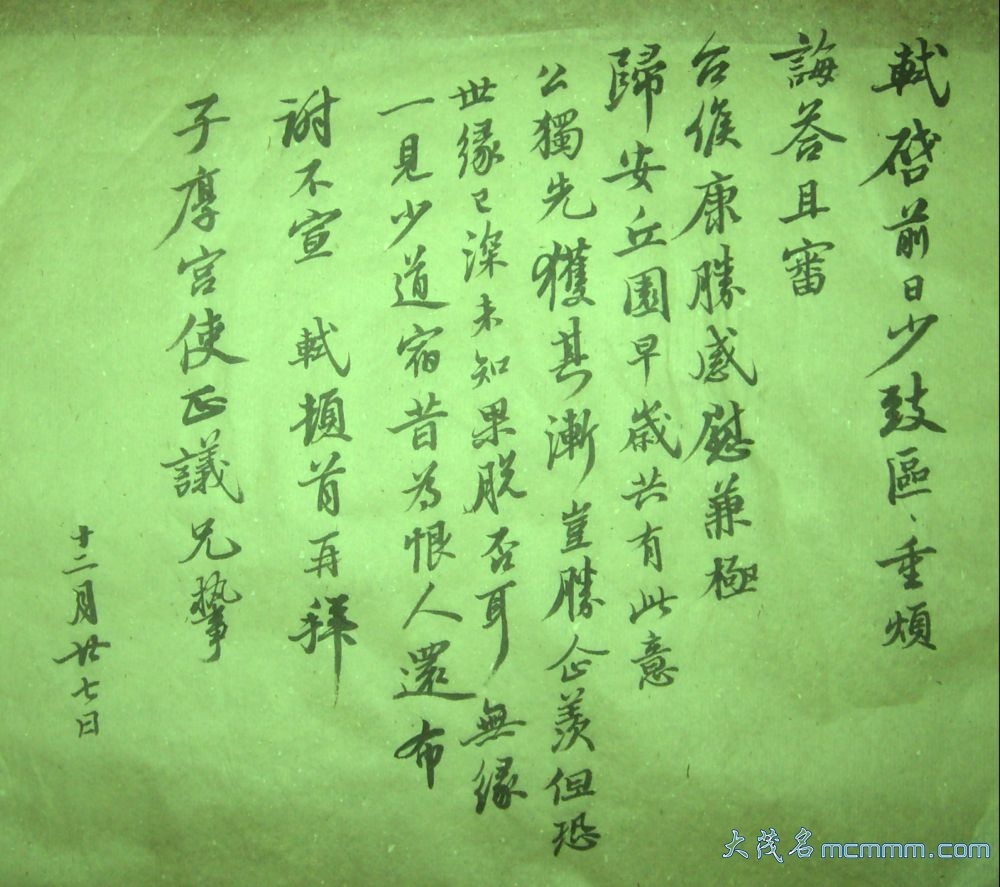 軾啓前日少致區、重煩
誨荅且審
台候康勝感慰兼極
歸安丘園早歲共有此意
公獨先獲其漸豈勝企羨但恐
世緣已深未知果脫否耳無緣
一見少道宿昔為恨人還布
謝不宣 軾頓首再拜
子厚宮使正議兄執事
十二月廿七日
大茂名mcmmm.com